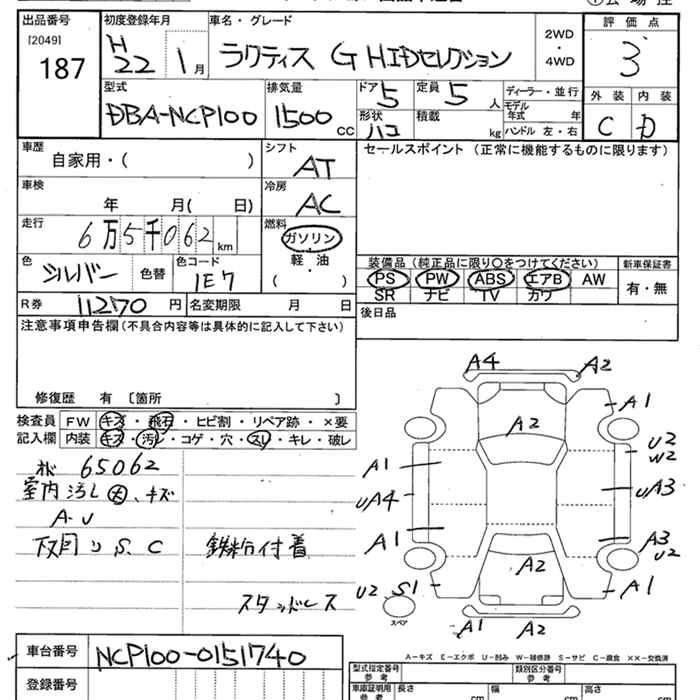 出品番号 初度登録年月 車名・グレード 評価点
[2049] 187 H22 1月 ラクティス G HIDセレクション 2WD・4WD 3
型式 排気量 ドア 定員 ディーラー・並行 外装 内装
DBA-NCP100 1500 CC 5 5 人 モデル年式 年 C D
形状 ハコ 積載 kg ハンドル 左・右
車歴 シフト セールスポイント (正常に機能するものに限ります)
自家用・( ) AT
車検 冷房
年 月( 日) AC
走行 燃料
6万5千062 km ガソリン
軽油
・
( )
色 シルバー 色替 色コード 1E7
装備品 (純正品に限り〇をつけてください) 新車保証書
PS PW ABS エアB AW 有・無
SR ナビ TV カワ
R券 11270 円 名変期限 月 日
後日品
注意事項申告欄 (不具合内容等は具体的に記入して下さい)
修復歴 有 〔箇所 〕
検査員 FW キズ・飛石・ヒビ割・リペア跡・×要
記入欄 内装 キズ・汚レ・コゲ・穴・スレ・キレ・破レ
65062
室内汚し 大、キズ
A.U
下回りS.C 鉄粉付着
スタッドレス
A4 A2
A1
A2
U2
W2
A1
UA4 UA3
A1 A3
U2
A2
U2 S1 A1
スペア
A1 A2
車台番号 NCP100-0151740
A-キズ E-エクボ U-凹み W-補修跡 S-サビ C-腐食 ××-交換済
登録番号
型式指定番号 参考 類別区分番号 参考
車庫証明用 参考 長さ cm 幅 cm 高さ cm